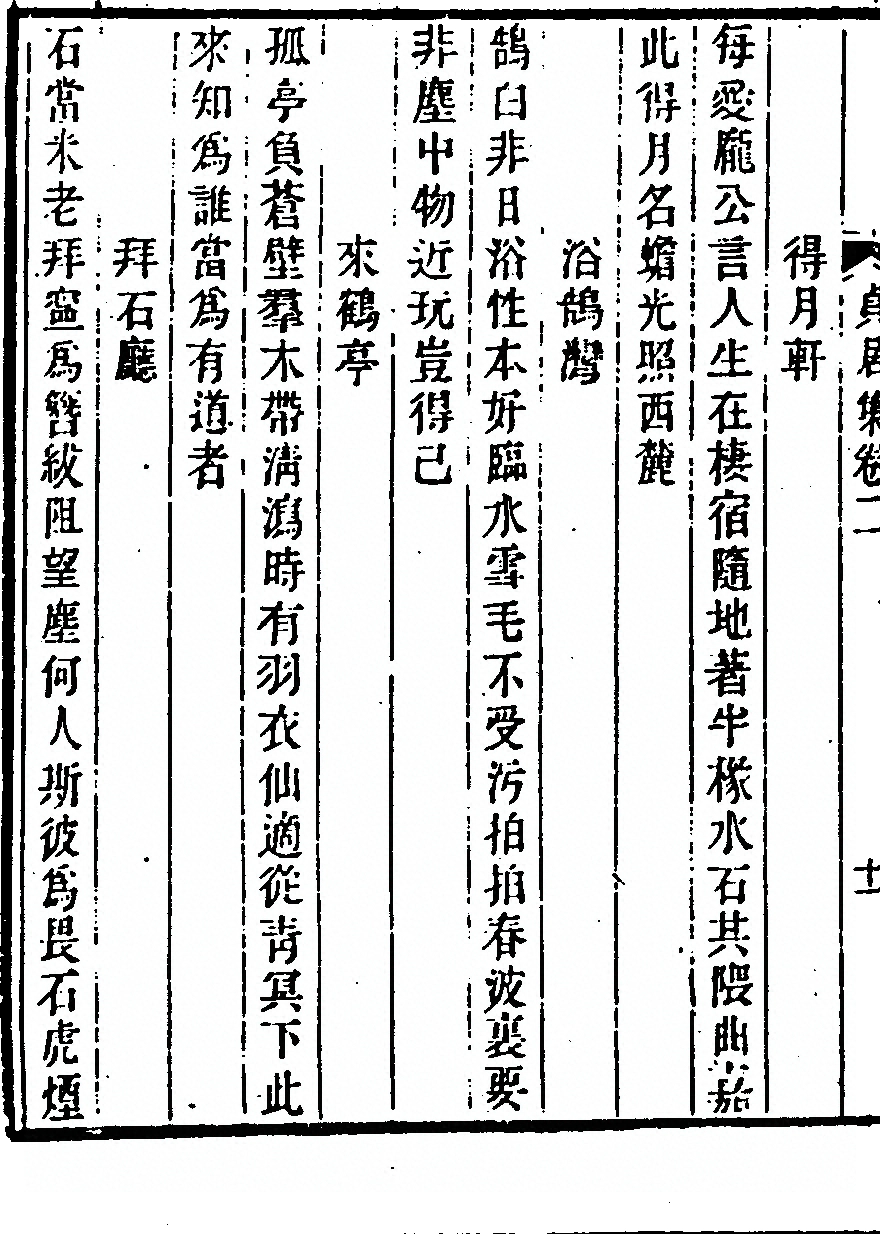 貞居集卷二
十一
得月軒
每愛龐公言人生在棲宿隨地著半椽水石其隈曲嘉
此得月名蟾光照西麓
浴鵠灣
鵠白非日浴性本好臨水雪毛不受污拍拍春波裏要
非塵中物近玩豈得已
來鶴亭
孤亭負蒼壁羣木帶淸瀉時有羽衣仙適從靑冥下此
來知爲誰當爲有道者
拜石廳
石當米老拜寍爲簪紱阻望塵何人斯彼爲畏石虎煙